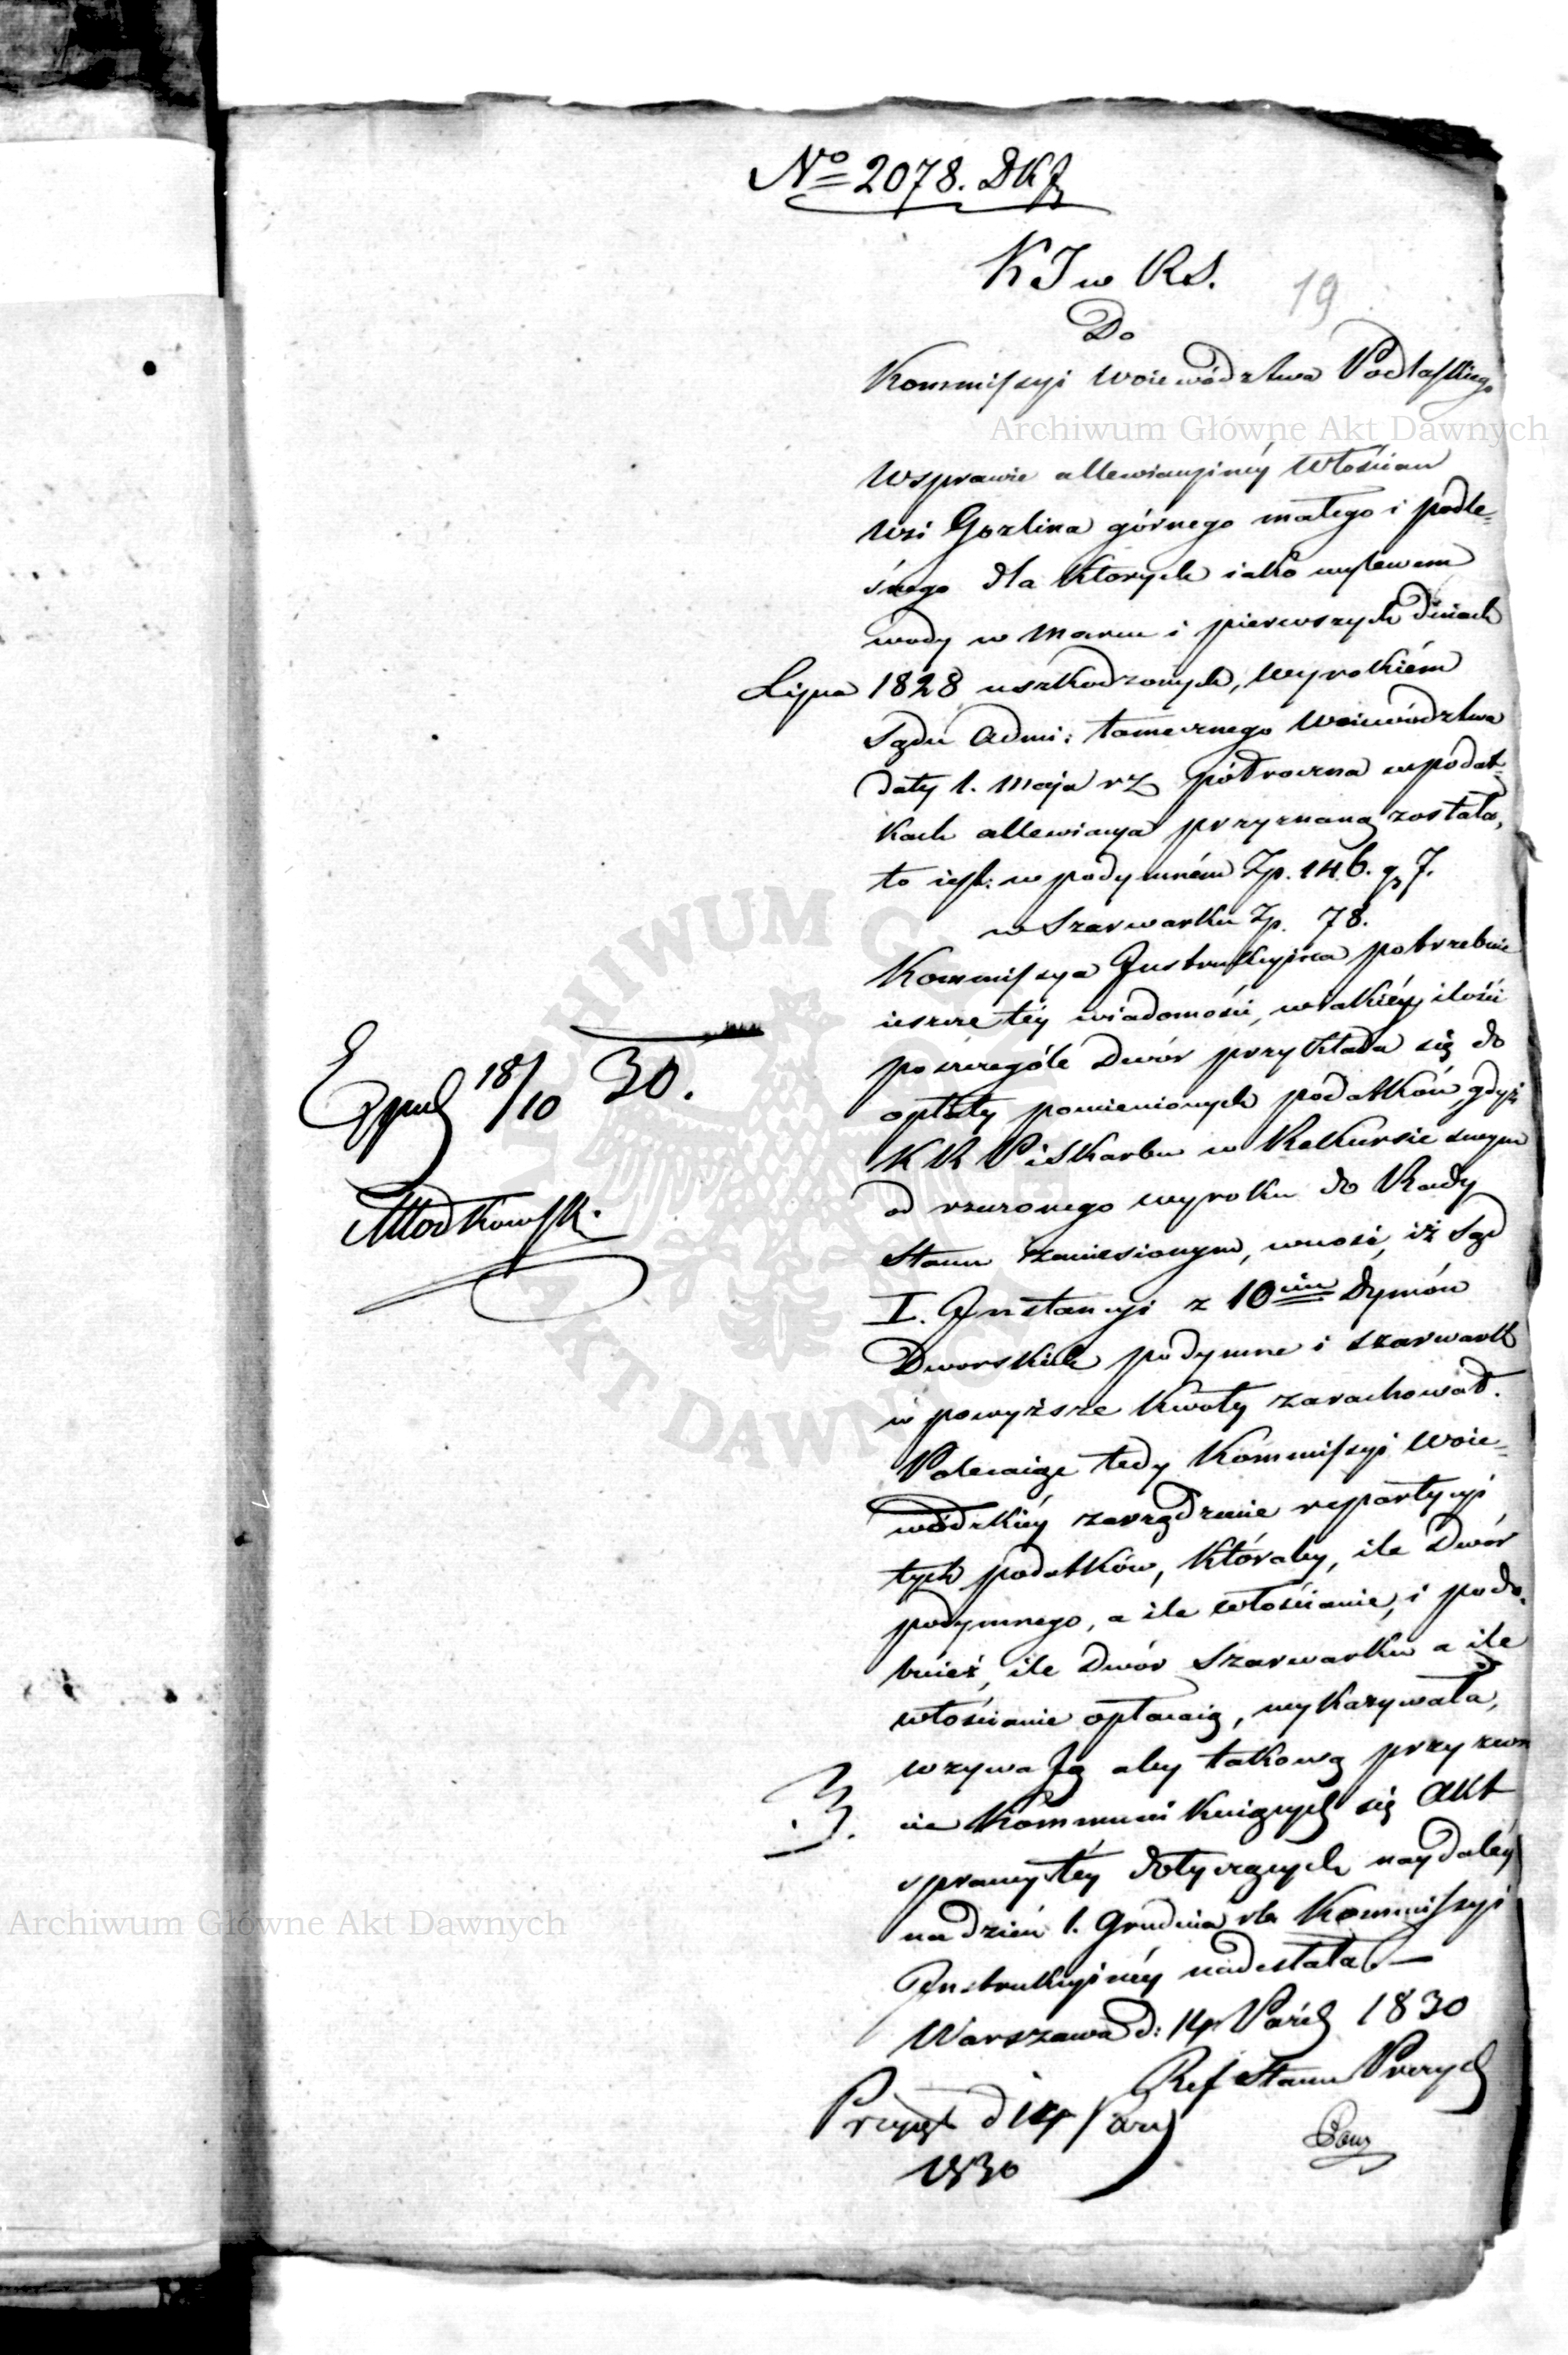 No 2078. DKJ
KJ w RS.
19
Do
Kommissyi Woiewództwa Podlaskiego
Archiwum Główne Akt Dawnych
Wsprawie allewiacyinéy Włościan
Wsi Gozlina górnego małego i podle-
śnego dla ktorych iako wylewem
wody w Marcu i pierwszych dniach
Lipca 1828 uszkodzonych, Wyrokiém
Sądu Admi: tamecznego Woiewództwa
daty 1. Maja rz półroczna wpodat-
kach allewiacya przyznaną została,
to iest: w podymném Zp. 146. g 7.
w Szarwarku Zp. 78.
Kommissya Instrukcyina potrzebuie
ieszcze téy wiadomości, wiakiéy ilości
poszczególe Dwór przykłada się do
opłaty pomienionych podatków, gdyż
KRP i Skarbu w Rekursie swym
od rzeczonego wyroku do Rady
Stanu zaniesionym, wnosi, iż Sąd
I. Instancyi z 10ciu Dymów
Dworskich podymne i szarwark
w powyższe kwoty zarachował.
Polecaiąc tedy Kommissyi Woie-
wódzkiéy zarządzenie repartycyi
tych podatków, któraby, ile Dwór
podymnego, a ile włościanie, i podo-
bnież, ile Dwór Szarwarku a ile
włościanie opłacaią, wykazywała,
wzywa Ją aby takową przy zwro
cie kommunikuiących się Akt
sprawy téy dotyczących naydaléy
na dzień 1. Grudnia rb Kommissyi
Instrukcyinéy nadesłała.—
Warszawa d: 14 Paźd 1830
Ref Stanu Prezyd
d 14
1830
Exped 18/10 30.
Młodkowski
3.
Archiwum Główne Akt Dawnych
ARCHIWUM GŁÓWNE AKT DAWNYCH